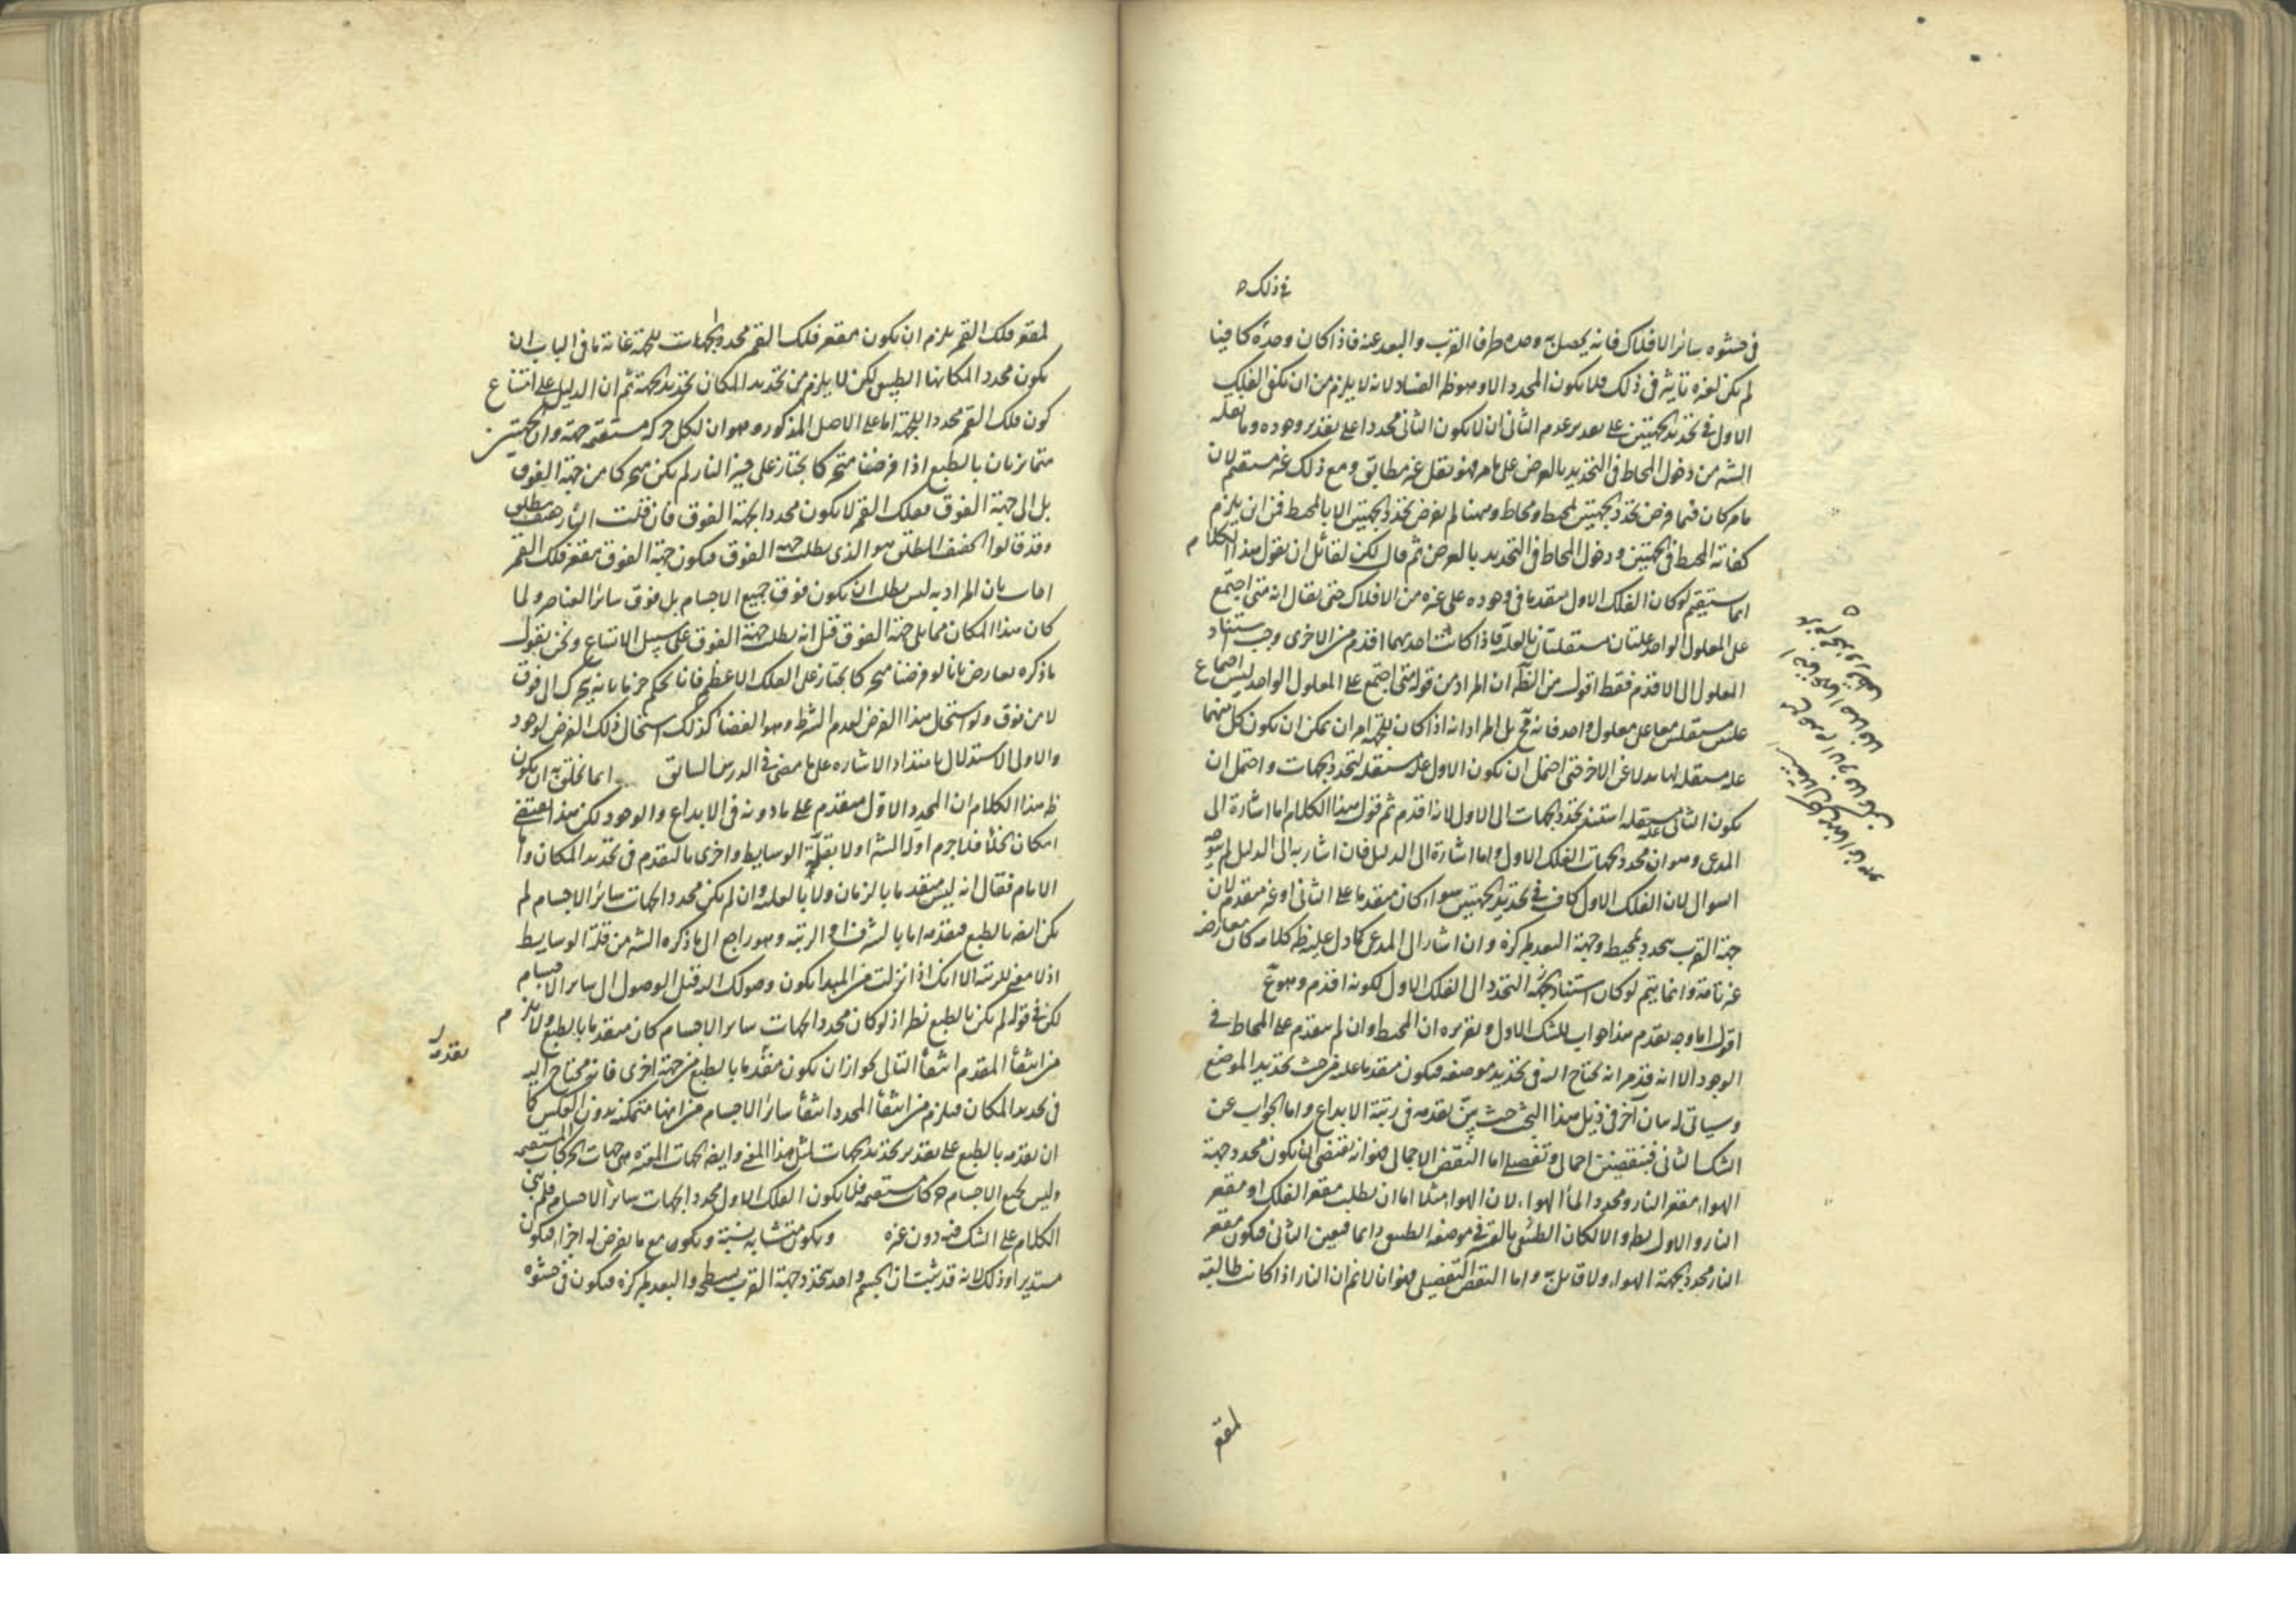 في ذلك
في حشوه سائر الافلاك فانه يحصل به وحده طرفا القرب والبعد عنه فاذا كان وحده كافيا
لم يكن لغيره تاثير في ذلك فلا يكون المحدد الا هو وهو ظ الفساد لانه لا يلزم من ان يكفي الفلك
الاول في تحديد الجهتين على تقدير عدم الثاني ان لا يكون الثاني محددا على تقدير وجوده وما نقله
الشه من دخول المحاط في التحديد بالعرض على ما مر فهو نقل غير مطابق ومع ذلك غير مستقيم لان
ما مر كان فيما فرض تحدد الجهتين لمحيط ومحاط وههنا لم يفرض تحدد الجهتين الا بالمحيط فمن ان يلزم
كفاية المحيط في الجهتين ودخول المحاط في التحديد بالعرض ثم قال لكن لقائل ان يقول هذا الكلام
انما يستقيم لو كان الفلك الاول متقدما في وجوده على غيره من الافلاك حتى يقال انه متى اجتمع
على المعلول الواحد علتان مستقلتان بالعلية فاذا كانت احديهما اقدم من الاخرى وجب استناد
المعلول الى الاقدم فقط اقول من الظ ان المراد من قوله متى اجتمع على المعلول الواحد ليس اجتماع
علتين مستقلتين معا على معلول واحد فانه مح بل المراد انه اذا كان للجهة امران يمكن ان يكون كل منهما
علة مستقلة لها بدلا عن الاخر حتى احتمل ان يكون الاول علة مستقلة لتحدد الجهات واحتمل ان
يكون الثاني علة مستقلة استند تحدد الجهات الى الاول لانه اقدم ثم قوله هذا الكلام اما اشارة الى
المدعى وهو ان محدد الجهات الفلك الاول واما اشارة الى الدليل فان اشار به الى الدليل لم يتوجه
السوال لان الفلك الاول كاف في تحديد الجهتين سواء كان متقدما على الثاني او غير متقدم لان
جهة القرب تتحدد بمحيطه وجهة البعد بمركزه وان اشار الى المدعى كما دل عليه ظ كلامه كان معارضة
غير تامة وانما يتم لو كان استناد جهة التحدد الى الفلك الاول لكونه اقدم وهو مح
اقول اما وجه تقدم هذا جواب للشك الاول وتقريره ان المحيط وان لم يتقدم على المحاط في
الوجود الا انه قد مر انه يحتاج اليه في تحديد موضعه فيكون متقدما عليه من حيث تحديد الموضع
وسياتي له بيان آخر في ذيل هذا البحث حيث بين تقدمه في رتبة الابداع واما الجواب عن
الشك الثاني فبنقضين اجمالي وتفصيلي اما النقض الاجمالي فهو انه يقتضي ان يكون محدد جهة
الهواء مقعر النار ومحدد الماء الهواء لان الهواء مثلا اما ان يطلب مقعر الفلك او مقعر
النار والاول بط والا لكان الطبيعي بالقسر في موضعه الطبيعي دائما فتعين الثاني فيكون مقعر
النار محدد الجهة الهواء ولا قائل به واما النقض التفصيلي فهو انا لا نم ان النار اذا كانت طالبة
لمقعر
لمقعر فلك القمر يلزم ان يكون مقعر فلك القمر محدد الجهات للجهة غاية ما في الباب ان
يكون محددا لمكانها الطبيعي لكن لا يلزم من تحديد المكان تحديد الجهة ثم ان الدليل على امتناع
كون فلك القمر محددا للجهة اما على الاصل المذكور وهو ان لكل حركة مستقيمة جهة وان الجهتين
متمايزتان بالطبع اذا فرضنا متحركا يجتاز على حيز النار لم يكن متحركا من جهة الفوق
بل الى جهة الفوق ففلك القمر لا يكون محددا لجهة الفوق فان قلت النار خفيف مطلق
وقد قالوا الخفيف المطلق هو الذي يطلب جهة الفوق فيكون جهة الفوق مقعر فلك القمر
اجاب بان المراد به ليس يطلب ان يكون فوق جميع الاجسام بل فوق سائر العناصر ولما
كان هذا المكان مما يلي جهة الفوق قيل انه يطلب جهة الفوق على سبيل الاتساع ونحن نقول
ما ذكره معارض بانا لو فرضنا متحركا يجتاز على الفلك الاعظم فانا نحكم جزما بانه يتحرك الى فوق
لا من فوق ولو استحال هذا الفرض لعدم الشرط وهو الفضاء كذلك استحال ذلك الفرض لوجود
والاولى الاستدلال بامتداد الاشارة على ما مضى في الدرس السابق انما يخلق به ان يكون
ظ هذا الكلام ان المحدد الاول متقدم على ما دونه في الابداع والوجود لكن هذا يقتضي
امكان الخلاء فلا جرم اوله الشه اولا بقلة الوسايط واخرى بالتقدم في تحديد المكان واما
الامام فقال انه ليس متقدما بالزمان ولا بالعلية وان لم يكن محدد الجهات سائر الاجسام لم
يكن ايضا بالطبع فتقدمه اما بالشرف او الرتبة وهو راجع الى ما ذكره الشه من قلة الوسايط
اذ لا معنى للرتبة الا انك اذا نزلت من المبدا يكون وصولك اليه قبل الوصول الى سائر الاجسام
لكن في قوله لم يكن بالطبع نظر اذ لو كان محدد الجهات سائر الاجسام كان متقدما بالطبع ولا يلزم
من انتفاء المقدم انتفاء التالي لجواز ان يكون متقدما بالطبع من جهة اخرى فانه محتاج اليه
في تحديد المكان فيلزم من انتفاء المحدد انتفاء سائر الاجسام من انها متمكنة بدون العكس كما
تقدمه
ان تقدمه بالطبع على تقدير تحديد الجهات لمثل هذا المعنى وايضا الجهات المعتبرة هي جهات الحركات المستقيمة
وليس لجميع الاجسام حركات مستقيمة فلا يكون الفلك الاول محدد الجهات سائر الاجسام فلم يبنى
الكلام على الشك فيه دون غيره ويكون متشابه نسبة ويكون مع ما يفرض له اجزاء فيكون
مستديرا وذلك لانه قد ثبت ان الجسم واحد يتحدد جهة القرب بسطحه والبعد بمركزه فيكون في حشوه